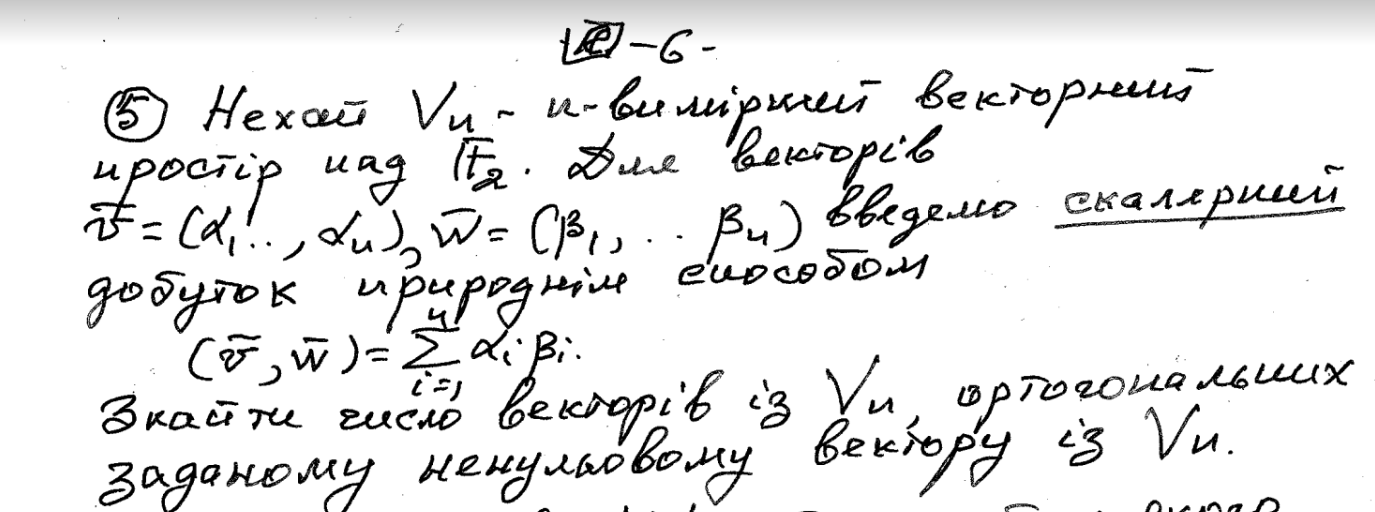 -6-
⑤ Нехай Vn - n-вимірний векторний
простір над F₂. Для векторів
v̄ = (α₁, .., αn), w̄ = (β₁, .. βn) введемо скалярний
добуток природнім способом
(v̄, w̄) = ∑ᵢ₌₁ⁿ αᵢ βᵢ.
Знайти число векторів із Vn, ортогональних
заданому ненульовому вектору із Vn.